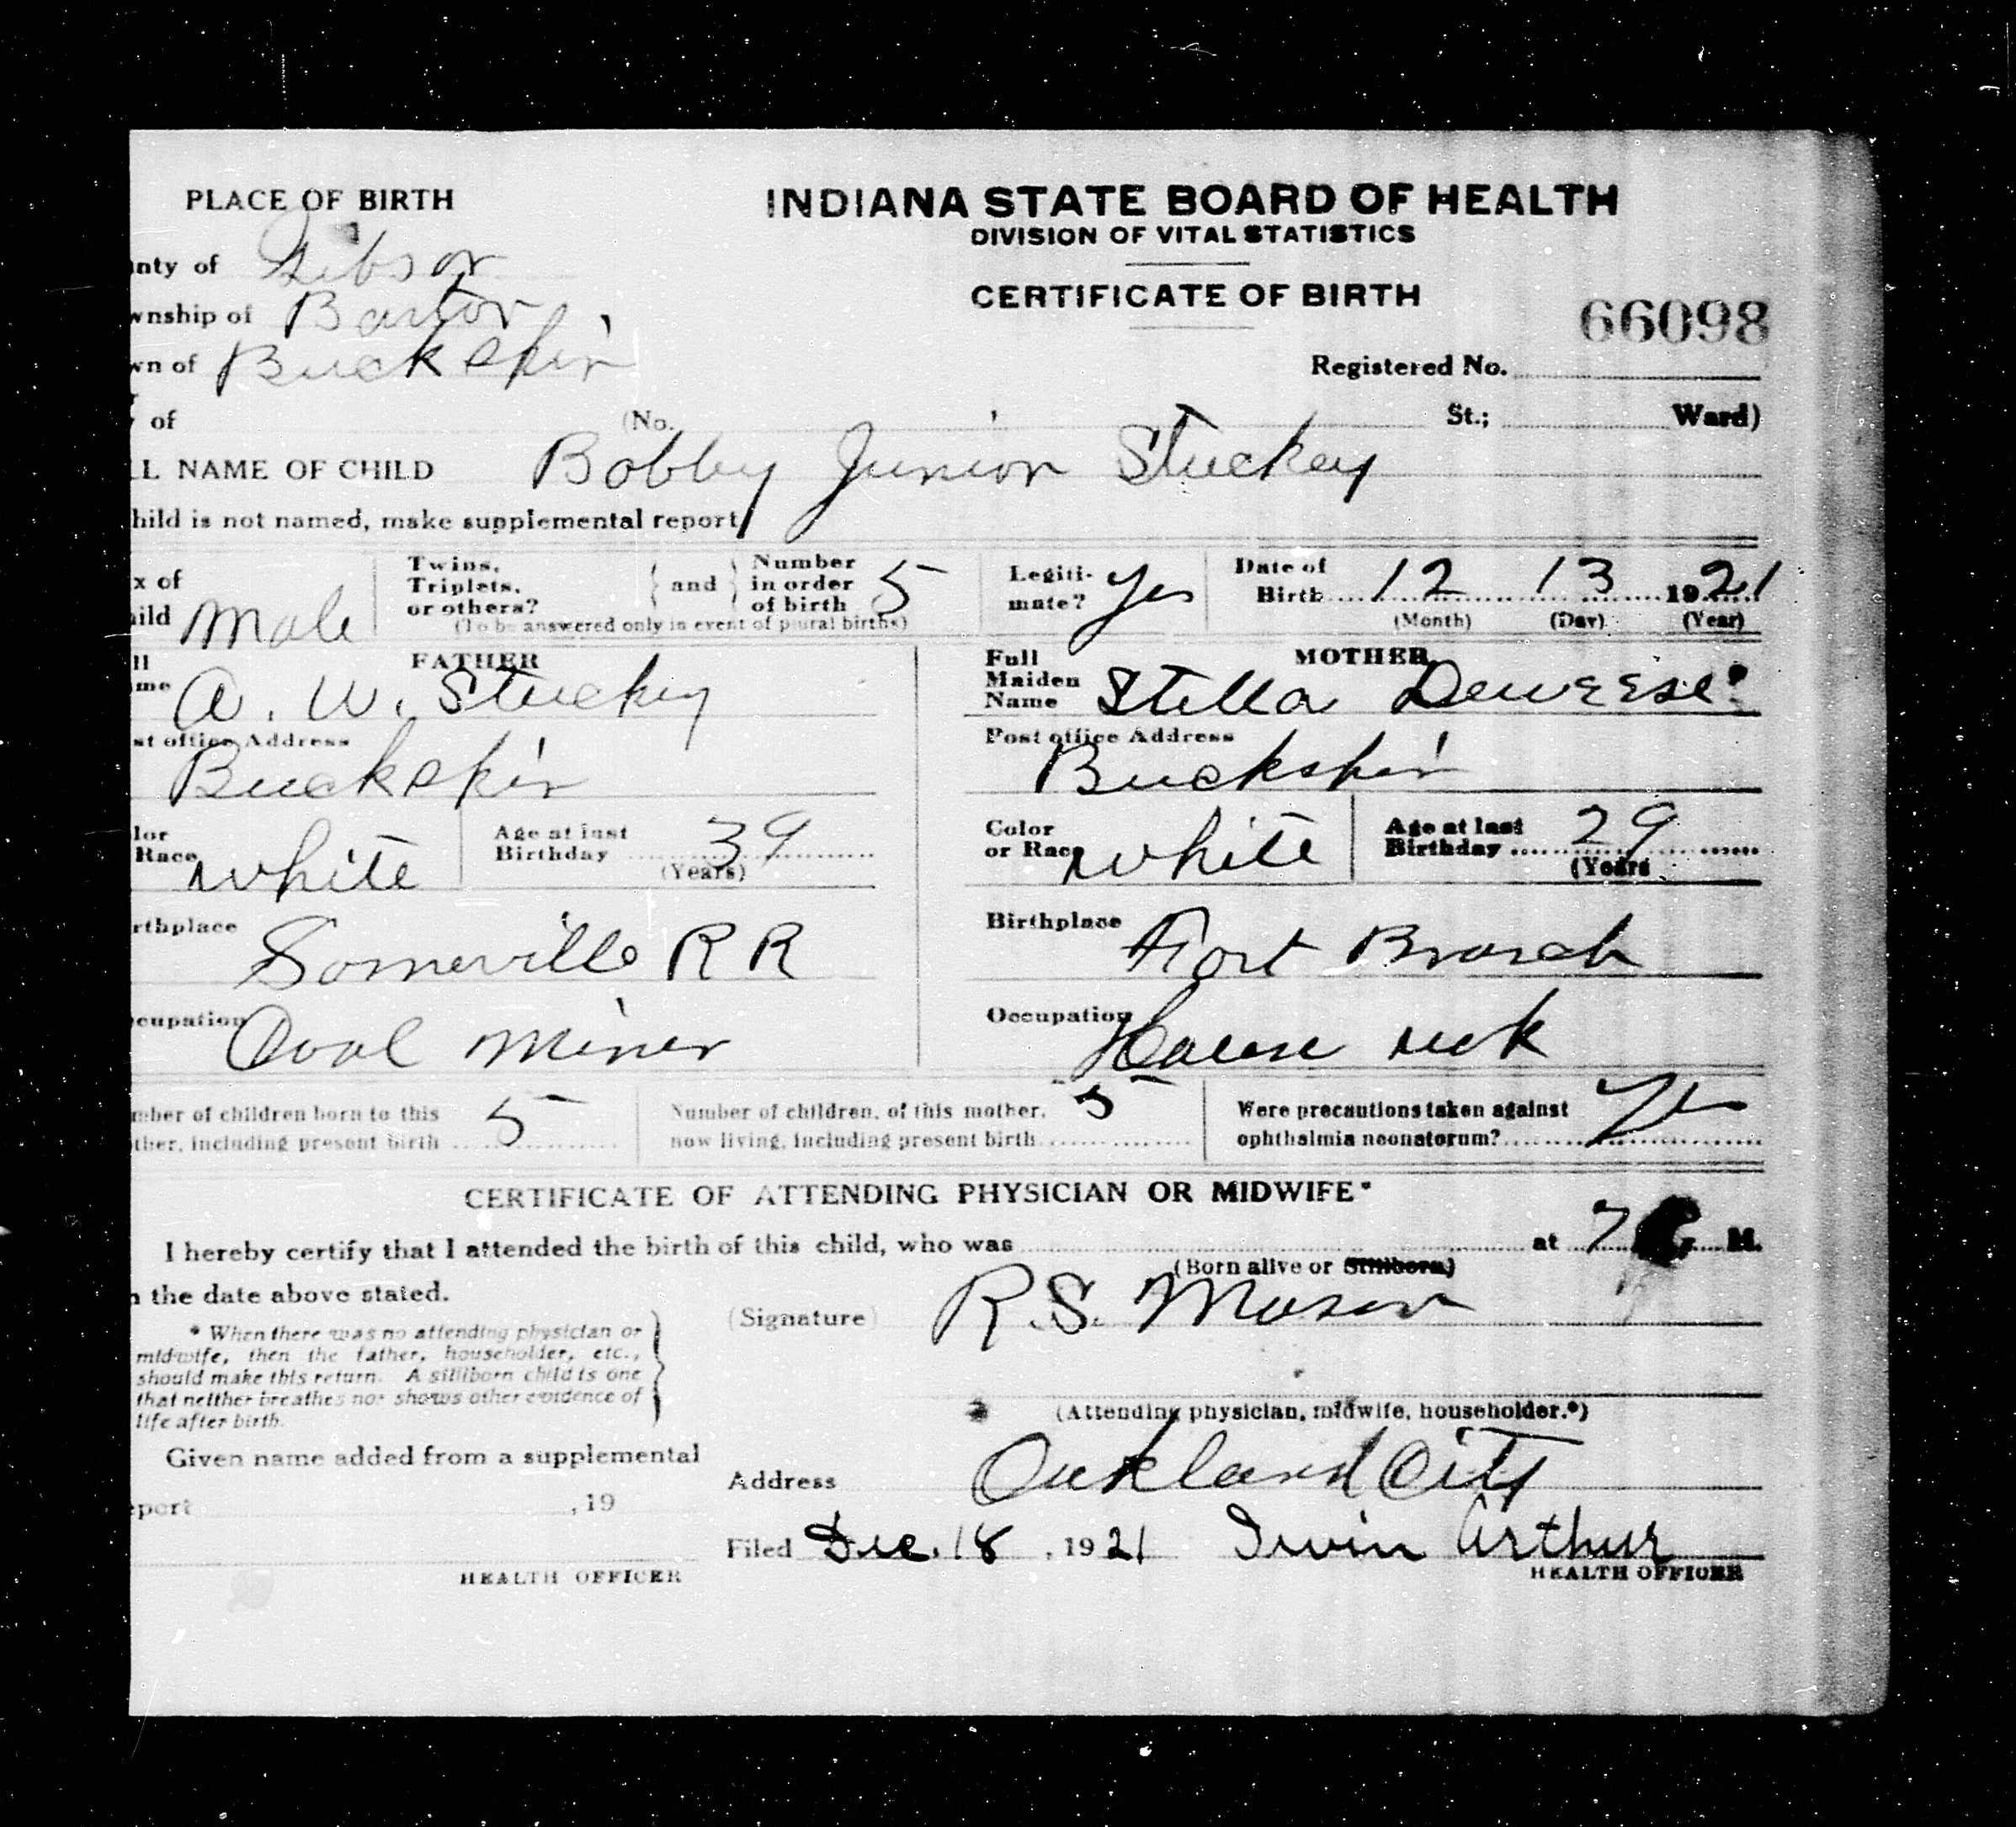 PLACE OF BIRTH
INDIANA STATE BOARD OF HEALTH
DIVISION OF VITAL STATISTICS
nty of Gibson
CERTIFICATE OF BIRTH
wnship of Barton
66098
wn of Buckskin
Registered No.
of (No. St.; Ward)
LL NAME OF CHILD Bobby Junior Stuckey
hild is not named, make supplemental report
x of
ild Male
Twins,
Triplets,
or others?
and
Number
in order
of birth 5
(To be answered only in event of plural births)
Legiti-
mate? Yes
Date of
Birth 12 13 1921
(Month) (Day) (Year)
FATHER
ll
me A. W. Stuckey
st office Address
Buckskin
lor
Race White
Age at last
Birthday 39
(Years)
rthplace
Somerville R R
cupation
Coal Miner
MOTHER
Full
Maiden
Name Stella Deweese
Post office Address
Buckskin
Color
or Race White
Age at last
Birthday 29
(Years
Birthplace
Fort Branch
Occupation
House wk
mber of children born to this
ther, including present birth 5
Number of children, of this mother,
now living, including present birth 5
Were precautions taken against
ophthalmia neonatorum? Yes
CERTIFICATE OF ATTENDING PHYSICIAN OR MIDWIFE*
I hereby certify that I attended the birth of this child, who was at 7 M.
(Born alive or Stillborn)
n the date above stated.
(Signature) R. S. Mason
* When there was no attending physician or
midwife, then the father, householder, etc.,
should make this return. A stillborn child is one
that neither breathes nor shows other evidence of
life after birth.
(Attending physician, midwife, householder.*)
Given name added from a supplemental
eport , 19
HEALTH OFFICER
Address Oakland City
Filed Dec. 18, 1921 Irvin Arthur
HEALTH OFFICER